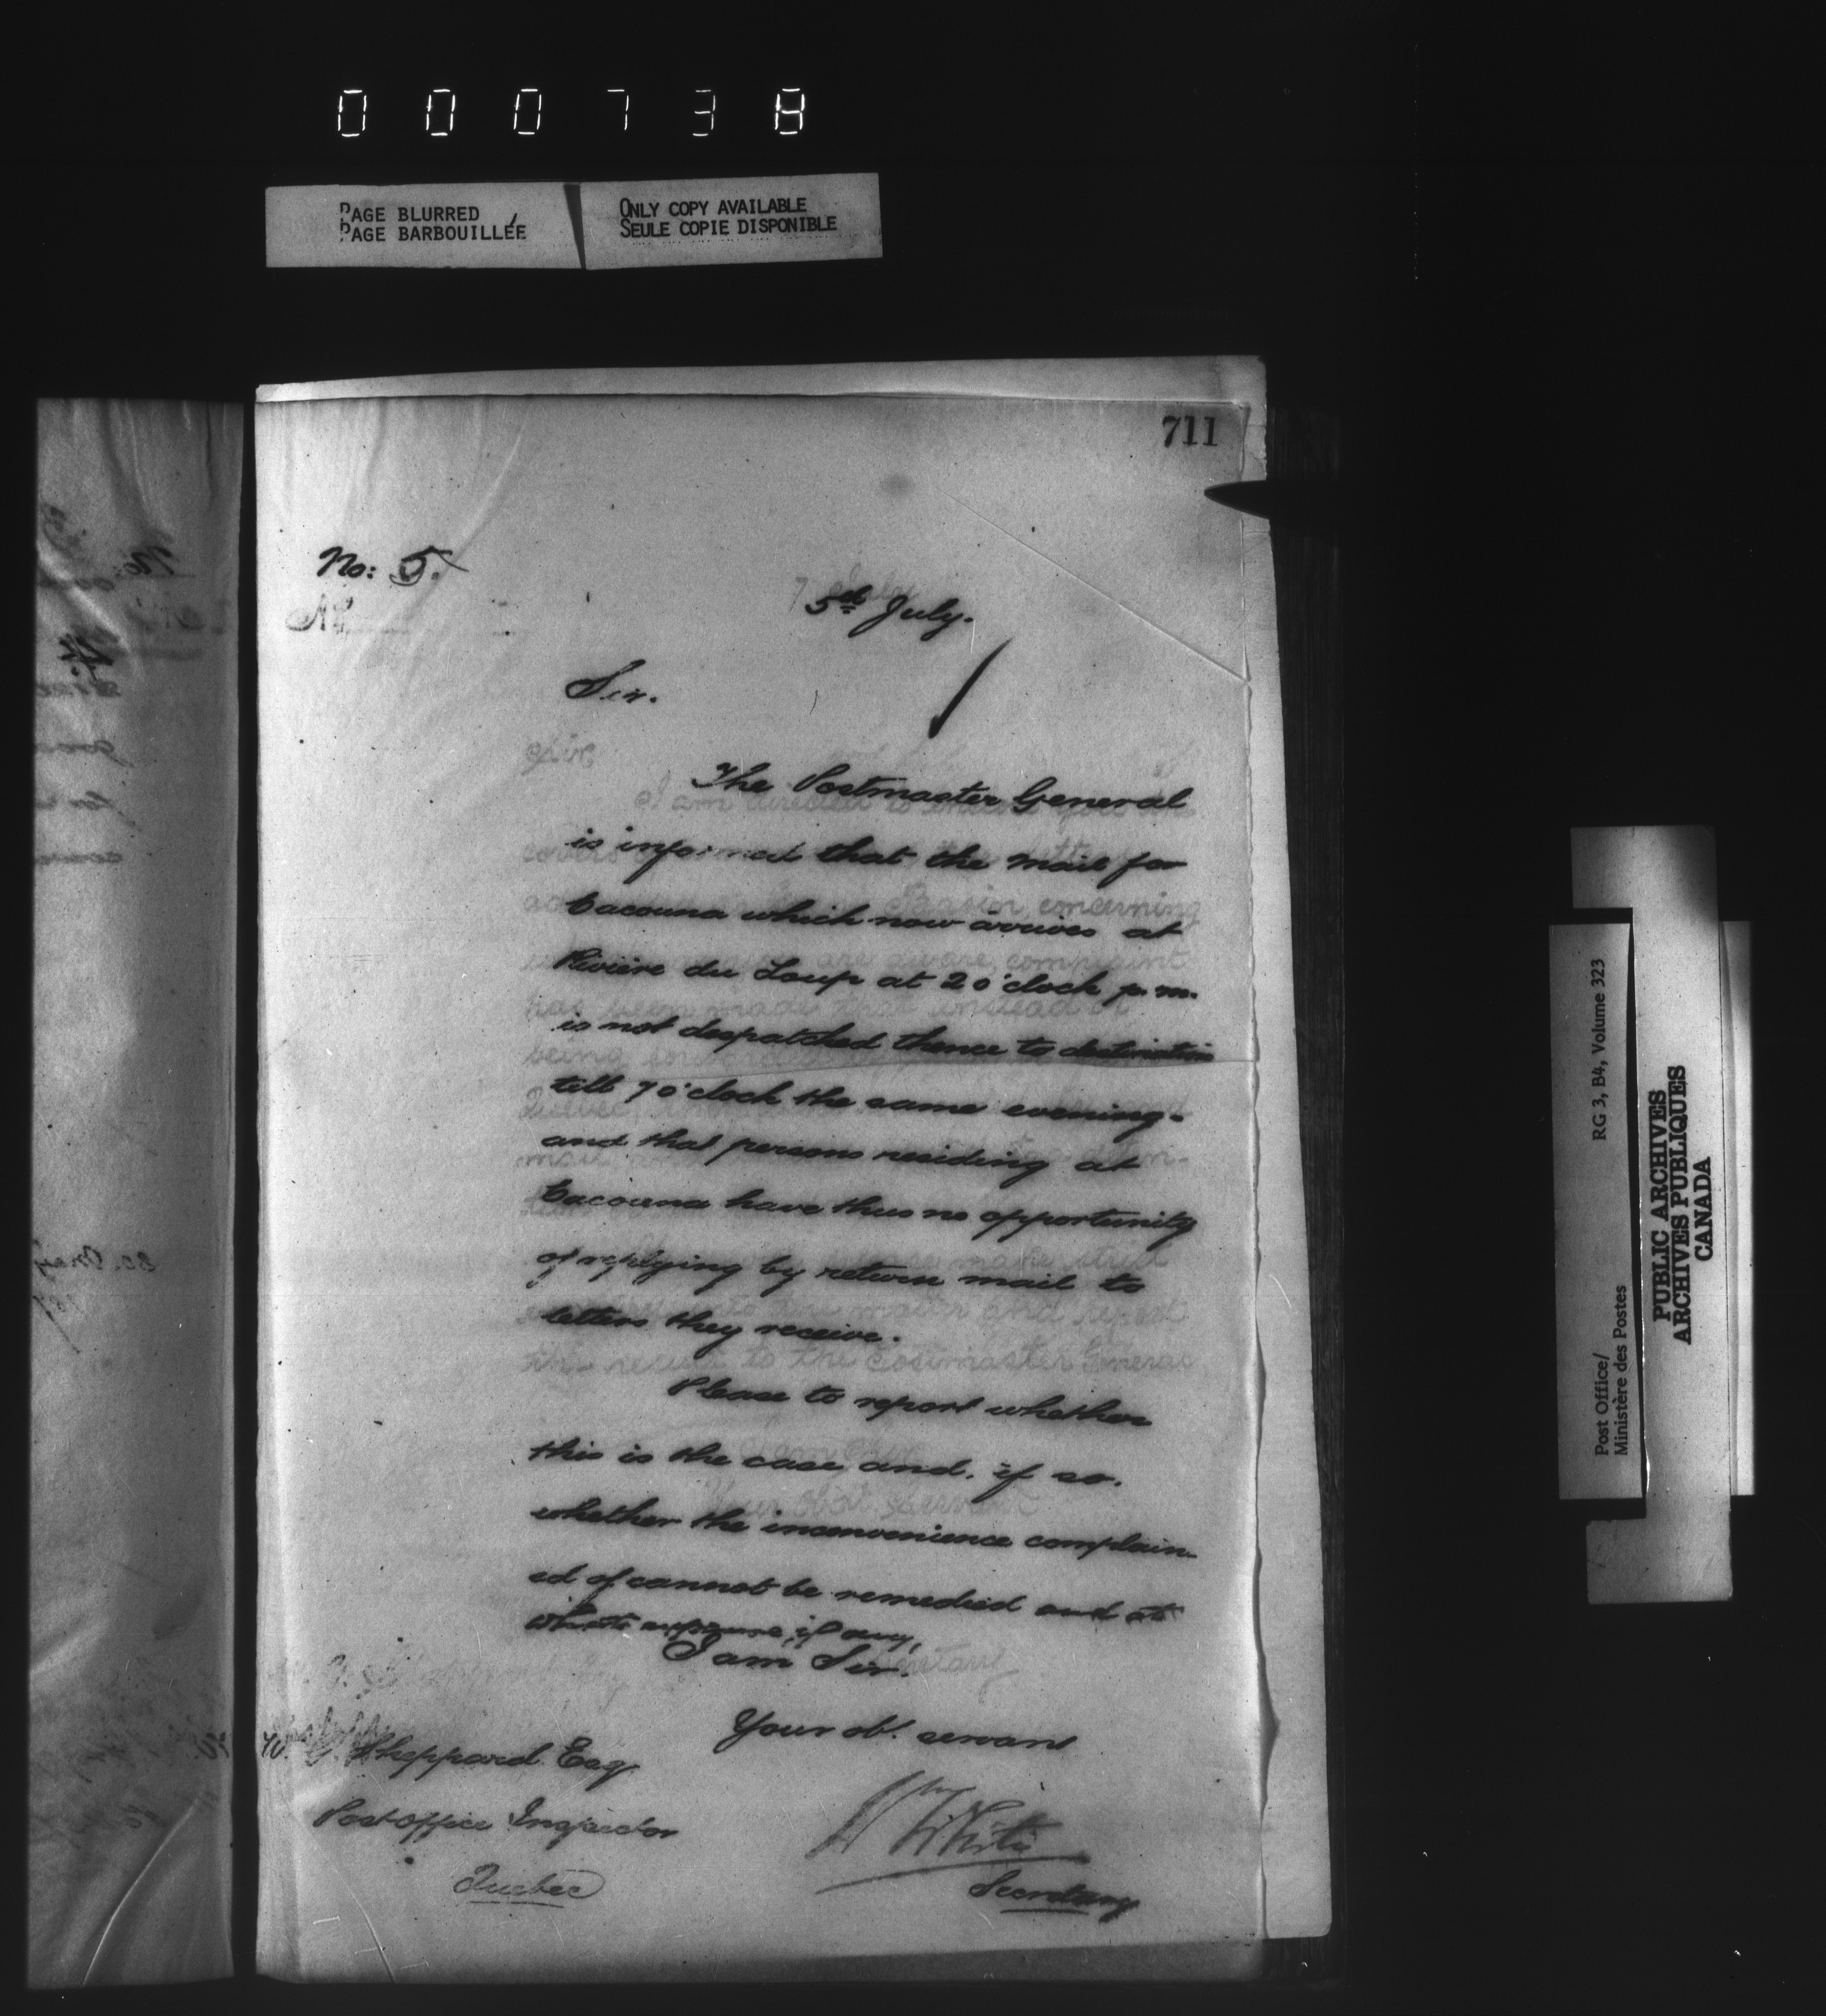 000738
PAGE BLURRED
PAGE BARBOUILLÉE
ONLY COPY AVAILABLE
SEULE COPIE DISPONIBLE
711
No: 5.
5th July.
Sir.
The Postmaster General
is informed that the mail for
Cacouna which now arrives at
Rivière du Loup at 2 o'clock p.m.
is not despatched thence to destination
till 7 o'clock the same evening-
and that persons residing at
Cacouna have thus no opportunity
of replying by return mail to
letters they receive.
Please to report whether
this is the case and, if so.
whether the inconvenience complain-
ed of cannot be remedied and at
what expense, if any,
I am Sir.
Your obt. servant
W. G. Sheppard Esq
Post office Inspector
Quebec
Wm White
Secretary
Post Office/
Ministère des Postes
RG 3, B4, Volume 323
PUBLIC ARCHIVES
ARCHIVES PUBLIQUES
CANADA